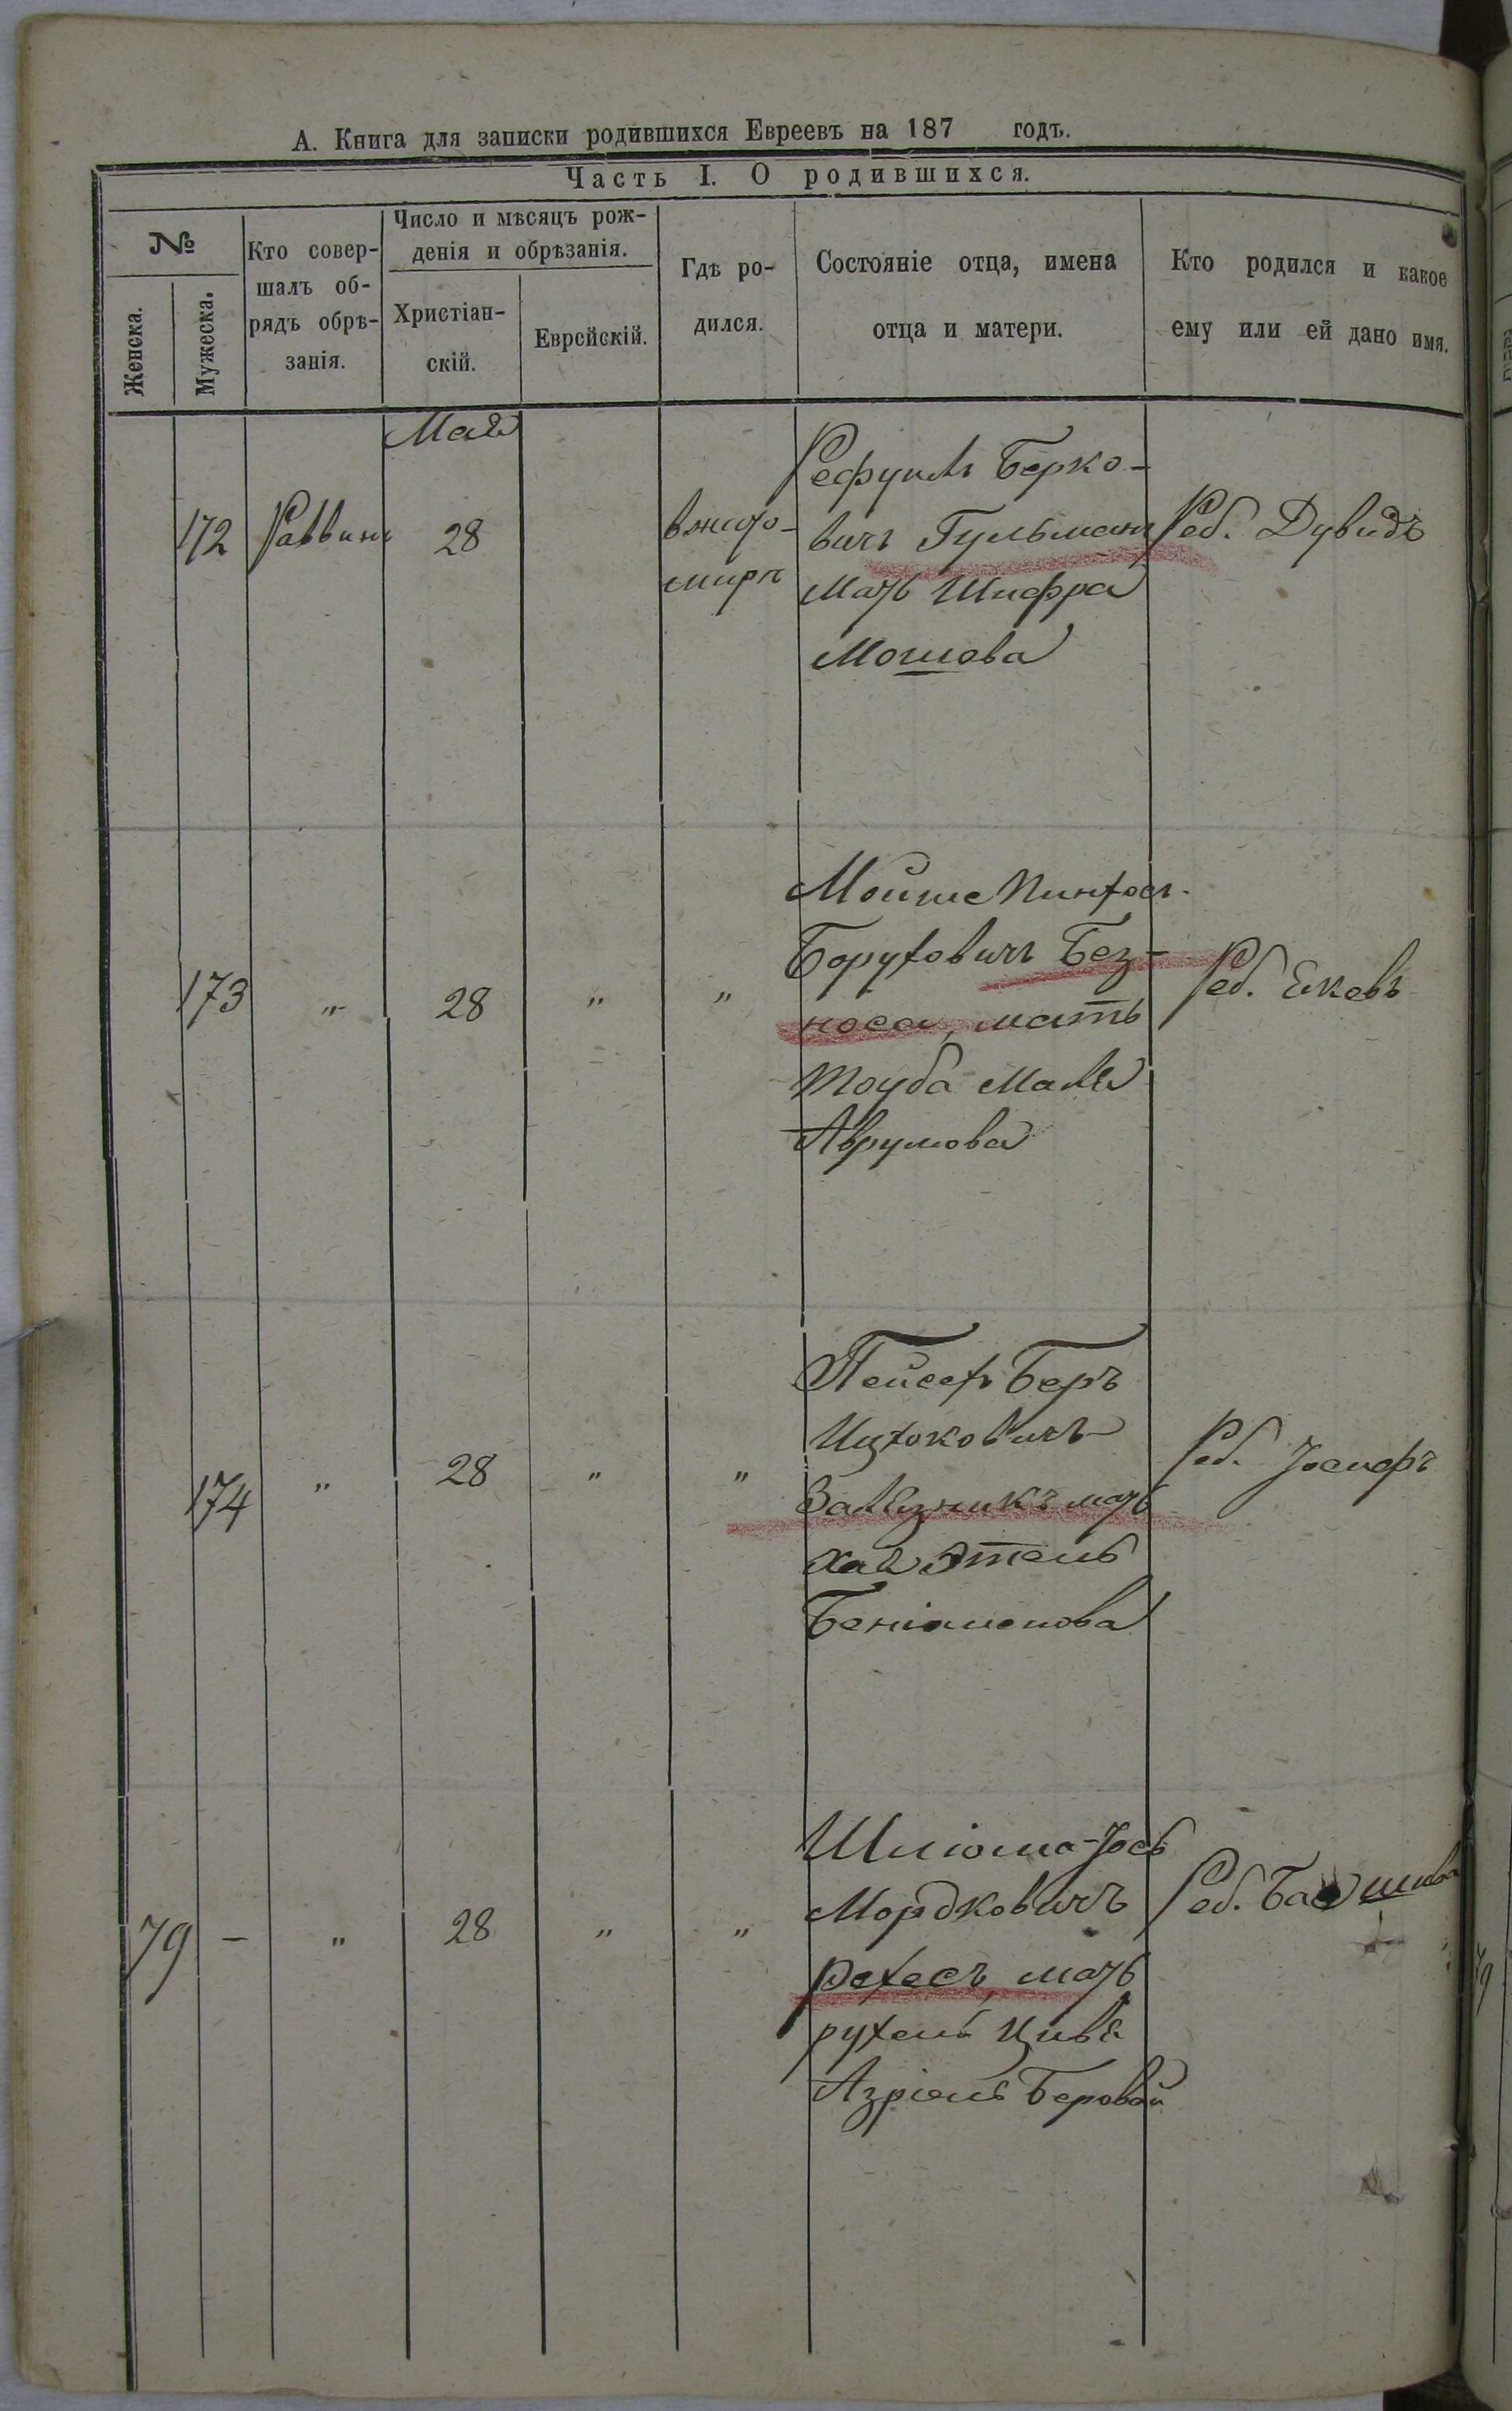 А. Книга для записки родившихся Евреевъ на 187 годъ.
Часть I. О родившихся.
№
Женска.
Мужеска.
Кто совер-
шалъ об-
рядъ обрѣ-
занія.
Число и мѣсяцъ рож-
денія и обрѣзанія.
Христіан-
скій.
Еврейскій.
Гдѣ ро-
дился.
Состояніе отца, имена
отца и матери.
Кто родился и какое
ему или ей дано имя.
Мая
172 Раввинъ 28
в жито-
мирѣ
Рефуилъ Берко-
вичъ Гульманъ
мать Шифра
Мошова
Реб. Дувидъ
173 „ 28 „ „
Мойше Пинхосъ
Боруховичъ Без-
носа, мать
Тоуба Маля
Аврумова
Реб. Екевъ
174 „ 28 „ „
Пейсехъ Беръ
Ицхоковичъ
Зализникъ мать
Хая Этель
Беніоминова
Реб. Іосифъ
79 - „ 28 „ „
Шліома-Іось
Мордковичъ
Рехесъ, мать
рухель Цивя
Азріель Беровой
Реб. Бася